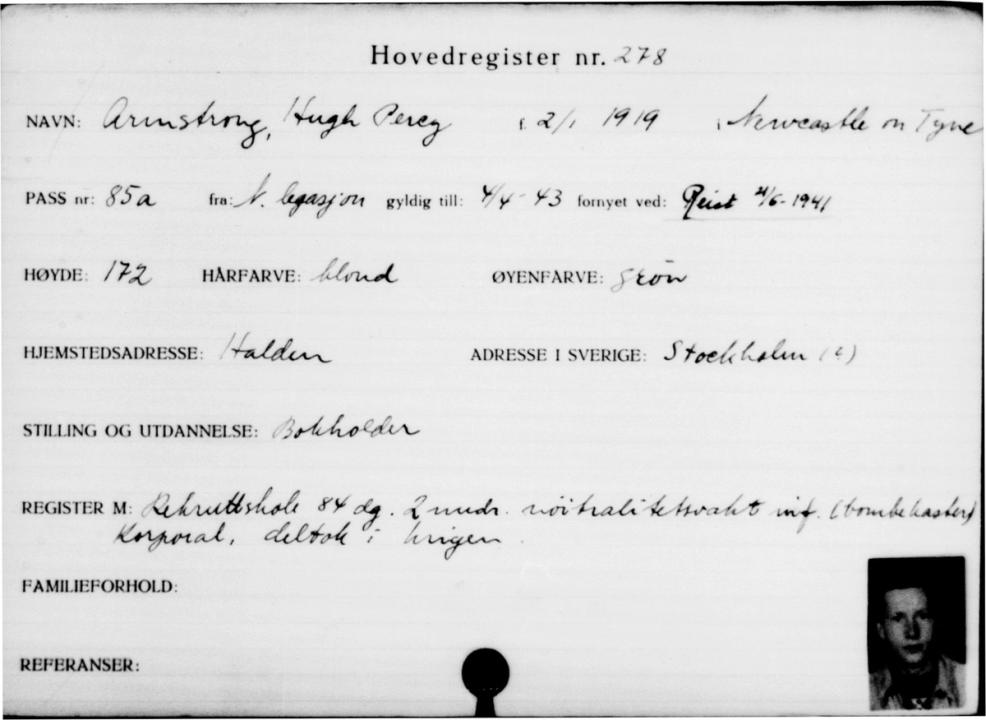 Hovedregister nr. 278
NAVN: Armstrong, Hugh Percy f. 2/1 1919 i Newcastle on Tyne
PASS nr: 85a fra: N. legasjon gyldig till: 4/4-43 fornyet ved: Reist 21/6-1941
HØYDE: 172 HÅRFARVE: blond ØYENFARVE: grön
HJEMSTEDSADRESSE: Halden ADRESSE I SVERIGE: Stockholm
STILLING OG UTDANNELSE: Bokholder
REGISTER M: Rekruttskole 84 dg. 2 mndr. nöitralitetsvakt inf. (bombekaster)
Korporal, deltok i krigen.
FAMILIEFORHOLD:
REFERANSER: